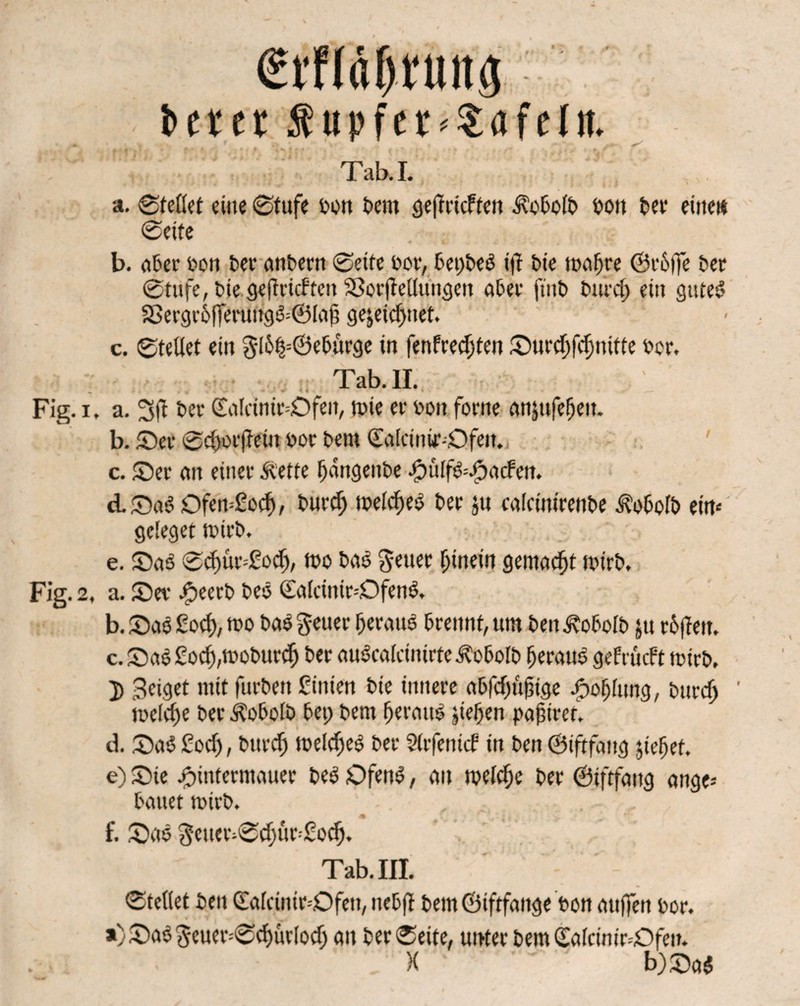 Erklährung
derer Kupfer-Tafeln.
Tab. I.
a. Stellet eine Stufe von dem gestrickten Kobold von der einen
Seite
b. aber von der andern Seite vor, beydes ist die wahre Grösse der
Stufe, die gestrickten Vorstellungen aber sind durch ein gutes
Vergrösserungs-Glaß gezeichnet.
c. Stellet ein Flötz-Gebürge in senkrechten Durchschnitte vor.
Tab. II.
Fig. 1. a. Ist der Calcinir-Ofen, wie er von forne anzusehen.
b. Der Schorstein vor dem Calcinir-Ofen.
c. Der an einer Kette hängende Hülfs-Hacken.
d. Das Ofen-Loch, durch welches der zu calcinirende Kobold ein-
geleget wird.
e. Das Schür-Loch, wo das Feuer hinein gemacht wird.
Fig. 2. a. Der Heerd des Calcinir-Ofens.
b. Das Loch, wo das Feuer heraus brennt, um den Kobold zu rösten.
c. Das Loch, wodurch der auscalcinirte Kobold heraus gekrückt wird.
☽ Zeiget mit kurben Linien die innere abschüßige Hohlung, durch
welche der Kobold bey dem heraus ziehen paßiret.
d. Das Loch, durch welches der Arsenick in den Giftfang ziehet.
e) Die Hintermauer des Ofens, an welche der Giftfang ange-
bauet wird.
f. Das Feuer-Schür-Loch.
Tab. III.
Stellet den Calcinir-Ofen, nebst dem Giftfange von aussen vor.
a) Das Feuer-Schürloch an der Seite, unter dem Calcinir-Ofen.
)( b) Das